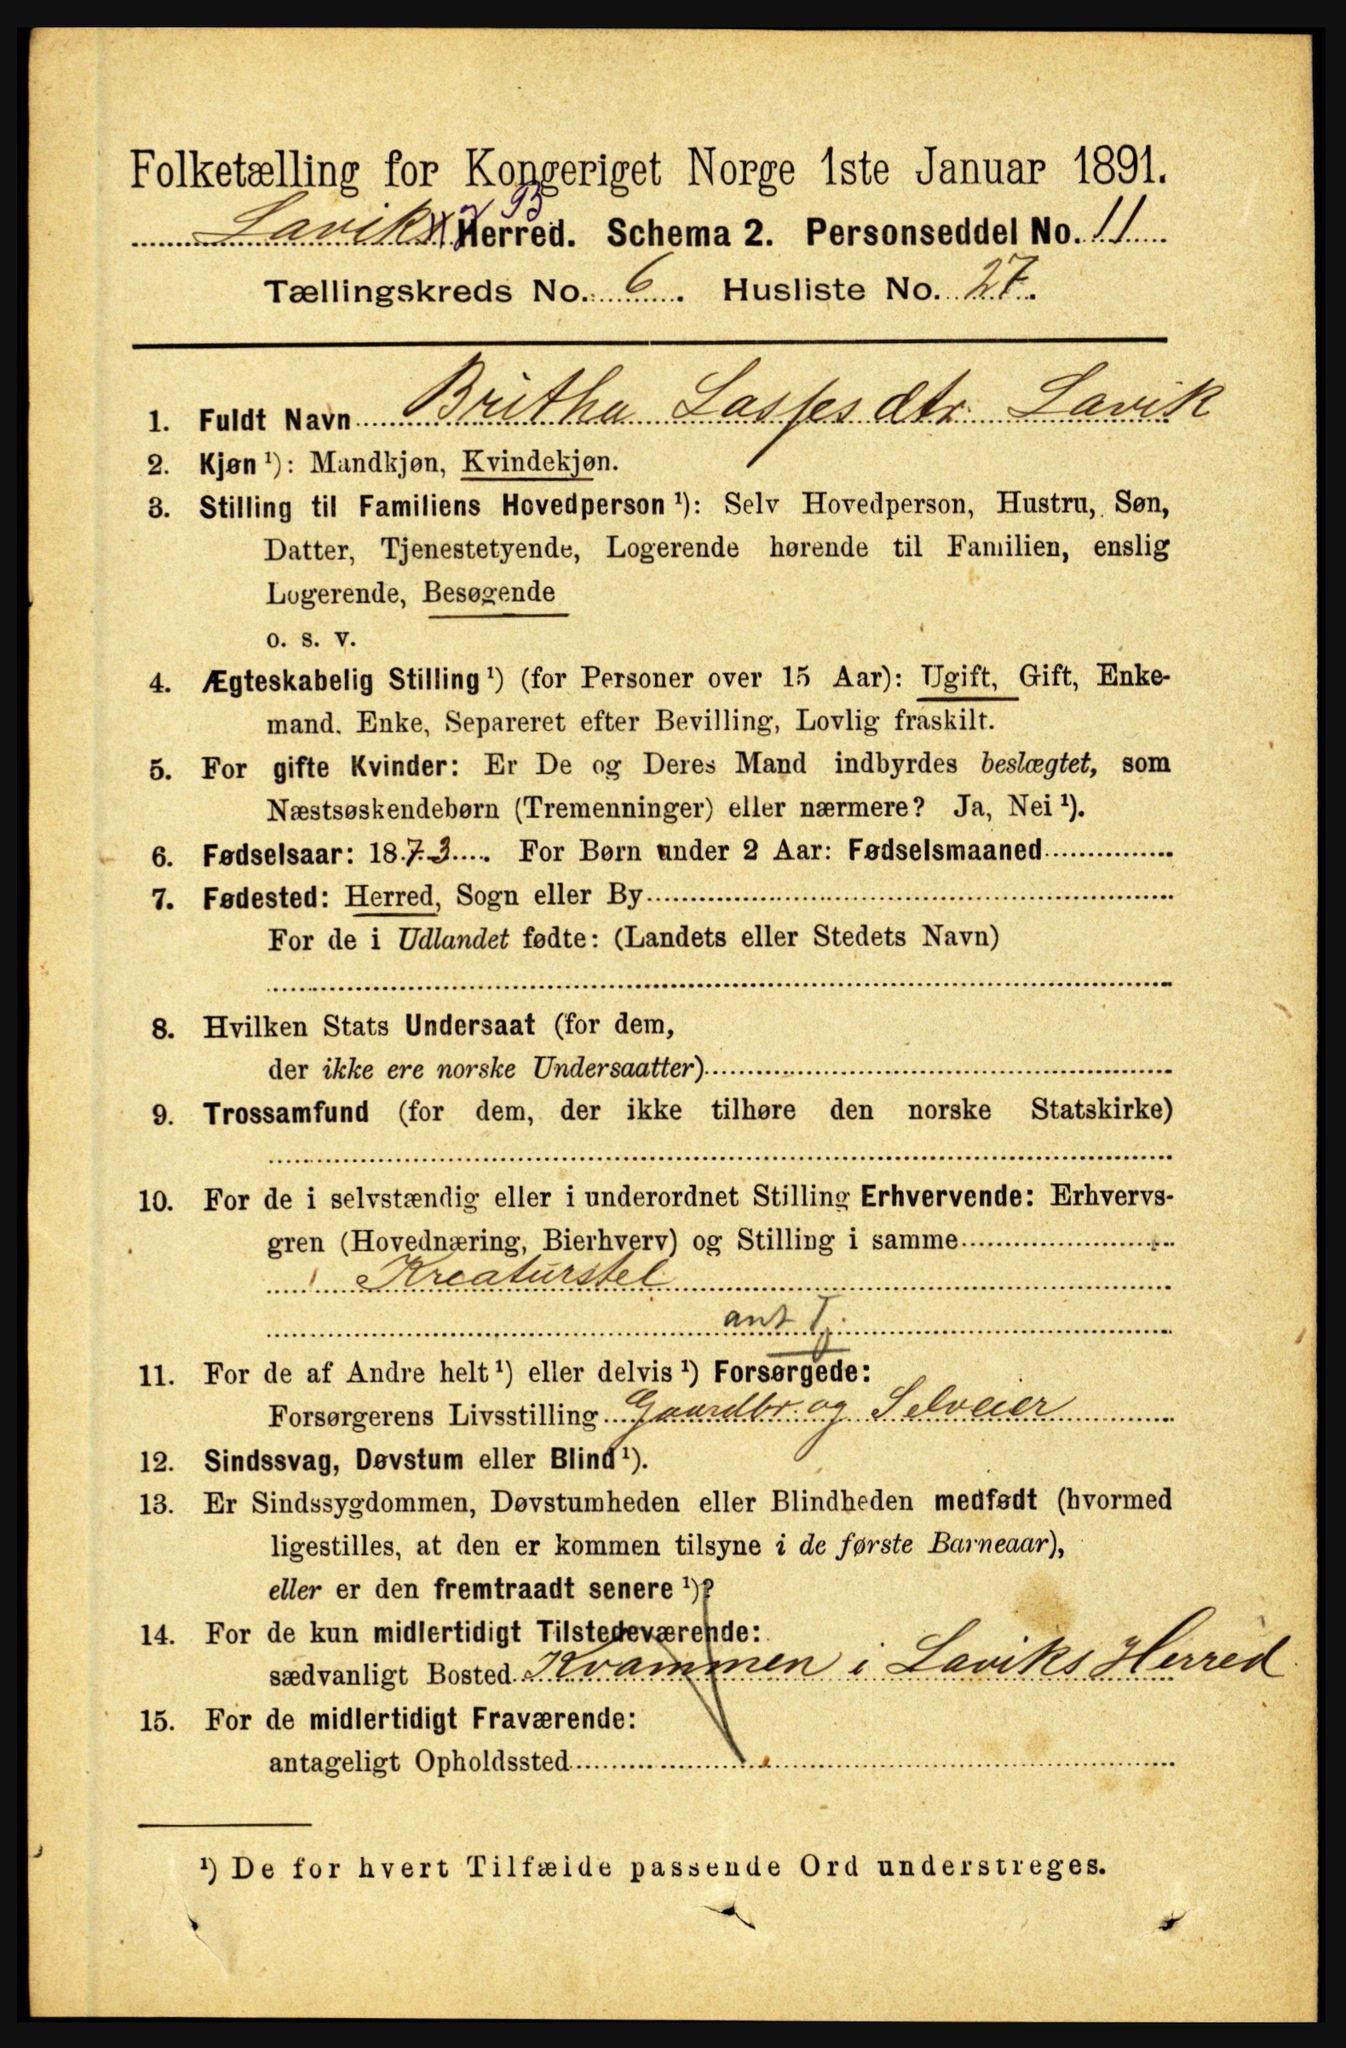 Folketælling for Kongeriget Norge 1ste Januar 1891.
Laviks B Herred. Schema 2. Personseddel No. 11
Tællingskreds No. 6. Husliste No. 27.
1. Fuldt Navn Britha Lasses dtr. Lavik
2. Kjøn ¹): Mandkjøn, Kvindekjøn.
3. Stilling til Familiens Hovedperson ¹): Selv Hovedperson, Hustru, Søn,
Datter, Tjenestetyende, Logerende hørende til Familien, enslig
Logerende, Besøgende
o. s. v.
4. Ægteskabelig Stilling ¹) (for Personer over 15 Aar): Ugift, Gift, Enke-
mand. Enke, Separeret efter Bevilling, Lovlig fraskilt.
5. For gifte Kvinder: Er De og Deres Mand indbyrdes beslægtet, som
Næstsøskendebørn (Tremenninger) eller nærmere? Ja, Nei ¹).
6. Fødselsaar: 1873. For Børn under 2 Aar: Fødselsmaaned
7. Fødested: Herred, Sogn eller By
For de i Udlandet fødte: (Landets eller Stedets Navn)
8. Hvilken Stats Undersaat (for dem,
der ikke ere norske Undersaatter)
9. Trossamfund (for dem, der ikke tilhøre den norske Statskirke)
10. For de i selvstændig eller i underordnet Stilling Erhvervende: Erhvervs-
gren (Hovednæring, Bierhverv) og Stilling i samme
Kreaturstel
ant Tj.
11. For de af Andre helt ¹) eller delvis ¹) Forsørgede:
Forsørgerens Livsstilling Gaardbr. og Selveier
12. Sindssvag, Døvstum eller Blind ¹).
13. Er Sindssygdommen, Døvstumheden eller Blindheden medfødt (hvormed
ligestilles, at den er kommen tilsyne i de første Barneaar),
eller er den fremtraadt senere ¹)?
14. For de kun midlertidigt Tilstedeværende:
sædvanligt Bosted Kvammen i Laviks Herred
15. For de midlertidigt Fraværende:
antageligt Opholdssted
¹) De for hvert Tilfælde passende Ord understreges.